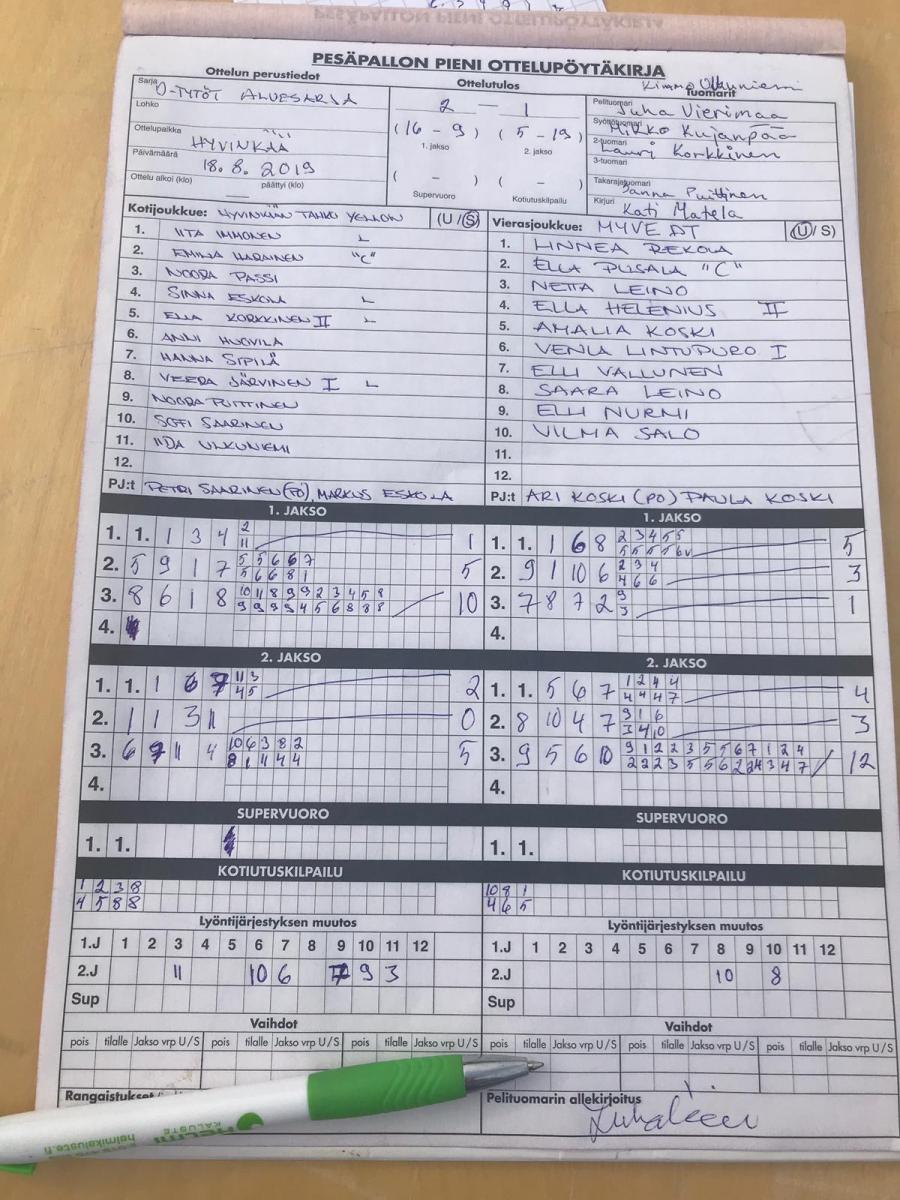 PESÄPALLON PIENI OTTELUPÖYTÄKIRJA
Ottelun perustiedot
Sarja D-TYTÖT ALUESARJA
Lohko
Ottelupaikka HYVINKÄÄ
Päivämäärä 18.8.2019
Ottelu alkoi (klo) päättyi (klo)
Ottelutulos
2 — 1
(16 - 9) (5 - 19)
1. jakso 2. jakso
( - ) ( - )
Supervuoro Kotiutuskilpailu
Kimmo Ulkuniemi
Tuomarit
Pelituomari Juha Vierimaa
Syöttötuomari Mikko Kujanpää
2-tuomari Lauri Korkkinen
3-tuomari
Takarajatuomari Sanna Puittinen
Kirjuri Kati Matela
Kotijoukkue: HYVINKÄÄN TAHKO YELLOW (U/S)
1. IITA IMMONEN L
2. EMILIA HARAINEN "C"
3. NOORA PASSI
4. SINNA ESKOLA L
5. ELLA KORKKINEN II L
6. ANNI HUOVILA
7. HANNA SIPILÄ
8. VEERA JÄRVINEN I L
9. NOORA PUITTINEN
10. SOFI SAARINEN
11. IIDA ULKUNIEMI
12.
PJ:t PETRI SAARINEN (PO), MARKUS ESKOLA
Vierasjoukkue: MYVE DT (U/S)
1. LINNEA REKOLA
2. ELLA PUSALA "C"
3. NETTA LEINO
4. ELLA HELENIUS II
5. AMALIA KOSKI
6. VENLA LINTUPURO I
7. ELLI VALLUNEN
8. SAARA LEINO
9. ELLI NURMI
10. VILMA SALO
11.
12.
PJ:t ARI KOSKI (PO) PAULA KOSKI
1. JAKSO
1. 1. 1 3 4 2 1
11
2. 5 9 1 7 5 5 6 6 7 5
5 6 6 8 1
3. 8 6 1 8 10 11 8 9 9 2 3 4 5 8 10
9 9 9 9 4 5 6 8 8 8
4.
1. JAKSO
1. 1. 1 6 8 2 3 4 5 5 5
5 5 5 5 6
2. 9 1 10 6 2 3 4 3
4 6 6
3. 7 8 7 2 9 1
3
4.
2. JAKSO
1. 1. 1 6 7 11 3 2
4 5
2. 1 1 3 11 0
3. 6 9 11 4 10 6 3 8 2 5
8 1 11 4 4
4.
2. JAKSO
1. 1. 5 6 7 1 2 4 4 4
4 4 4 7
2. 8 10 4 7 9 1 6 3
3 4 10
3. 9 5 6 10 9 1 2 2 3 5 5 6 7 1 2 4 12
2 2 2 3 5 5 6 2 4 3 4 7
4.
SUPERVUORO
1. 1.
SUPERVUORO
1. 1.
KOTIUTUSKILPAILU
1 2 3 8
4 5 8 8
KOTIUTUSKILPAILU
10 8 1
4 6 5
Lyöntijärjestyksen muutos
1.J 1 2 3 4 5 6 7 8 9 10 11 12
2.J 11 10 6 7 9 3
Sup
Lyöntijärjestyksen muutos
1.J 1 2 3 4 5 6 7 8 9 10 11 12
2.J 10 8
Sup
Vaihdot
pois tilalle Jakso vrp U/S pois tilalle Jakso vrp U/S pois tilalle Jakso vrp U/S
Vaihdot
pois tilalle Jakso vrp U/S pois tilalle Jakso vrp U/S pois tilalle Jakso vrp U/S
Rangaistukset
Pelituomarin allekirjoitus
HELMI
KALUSTE
helmikaluste.fi